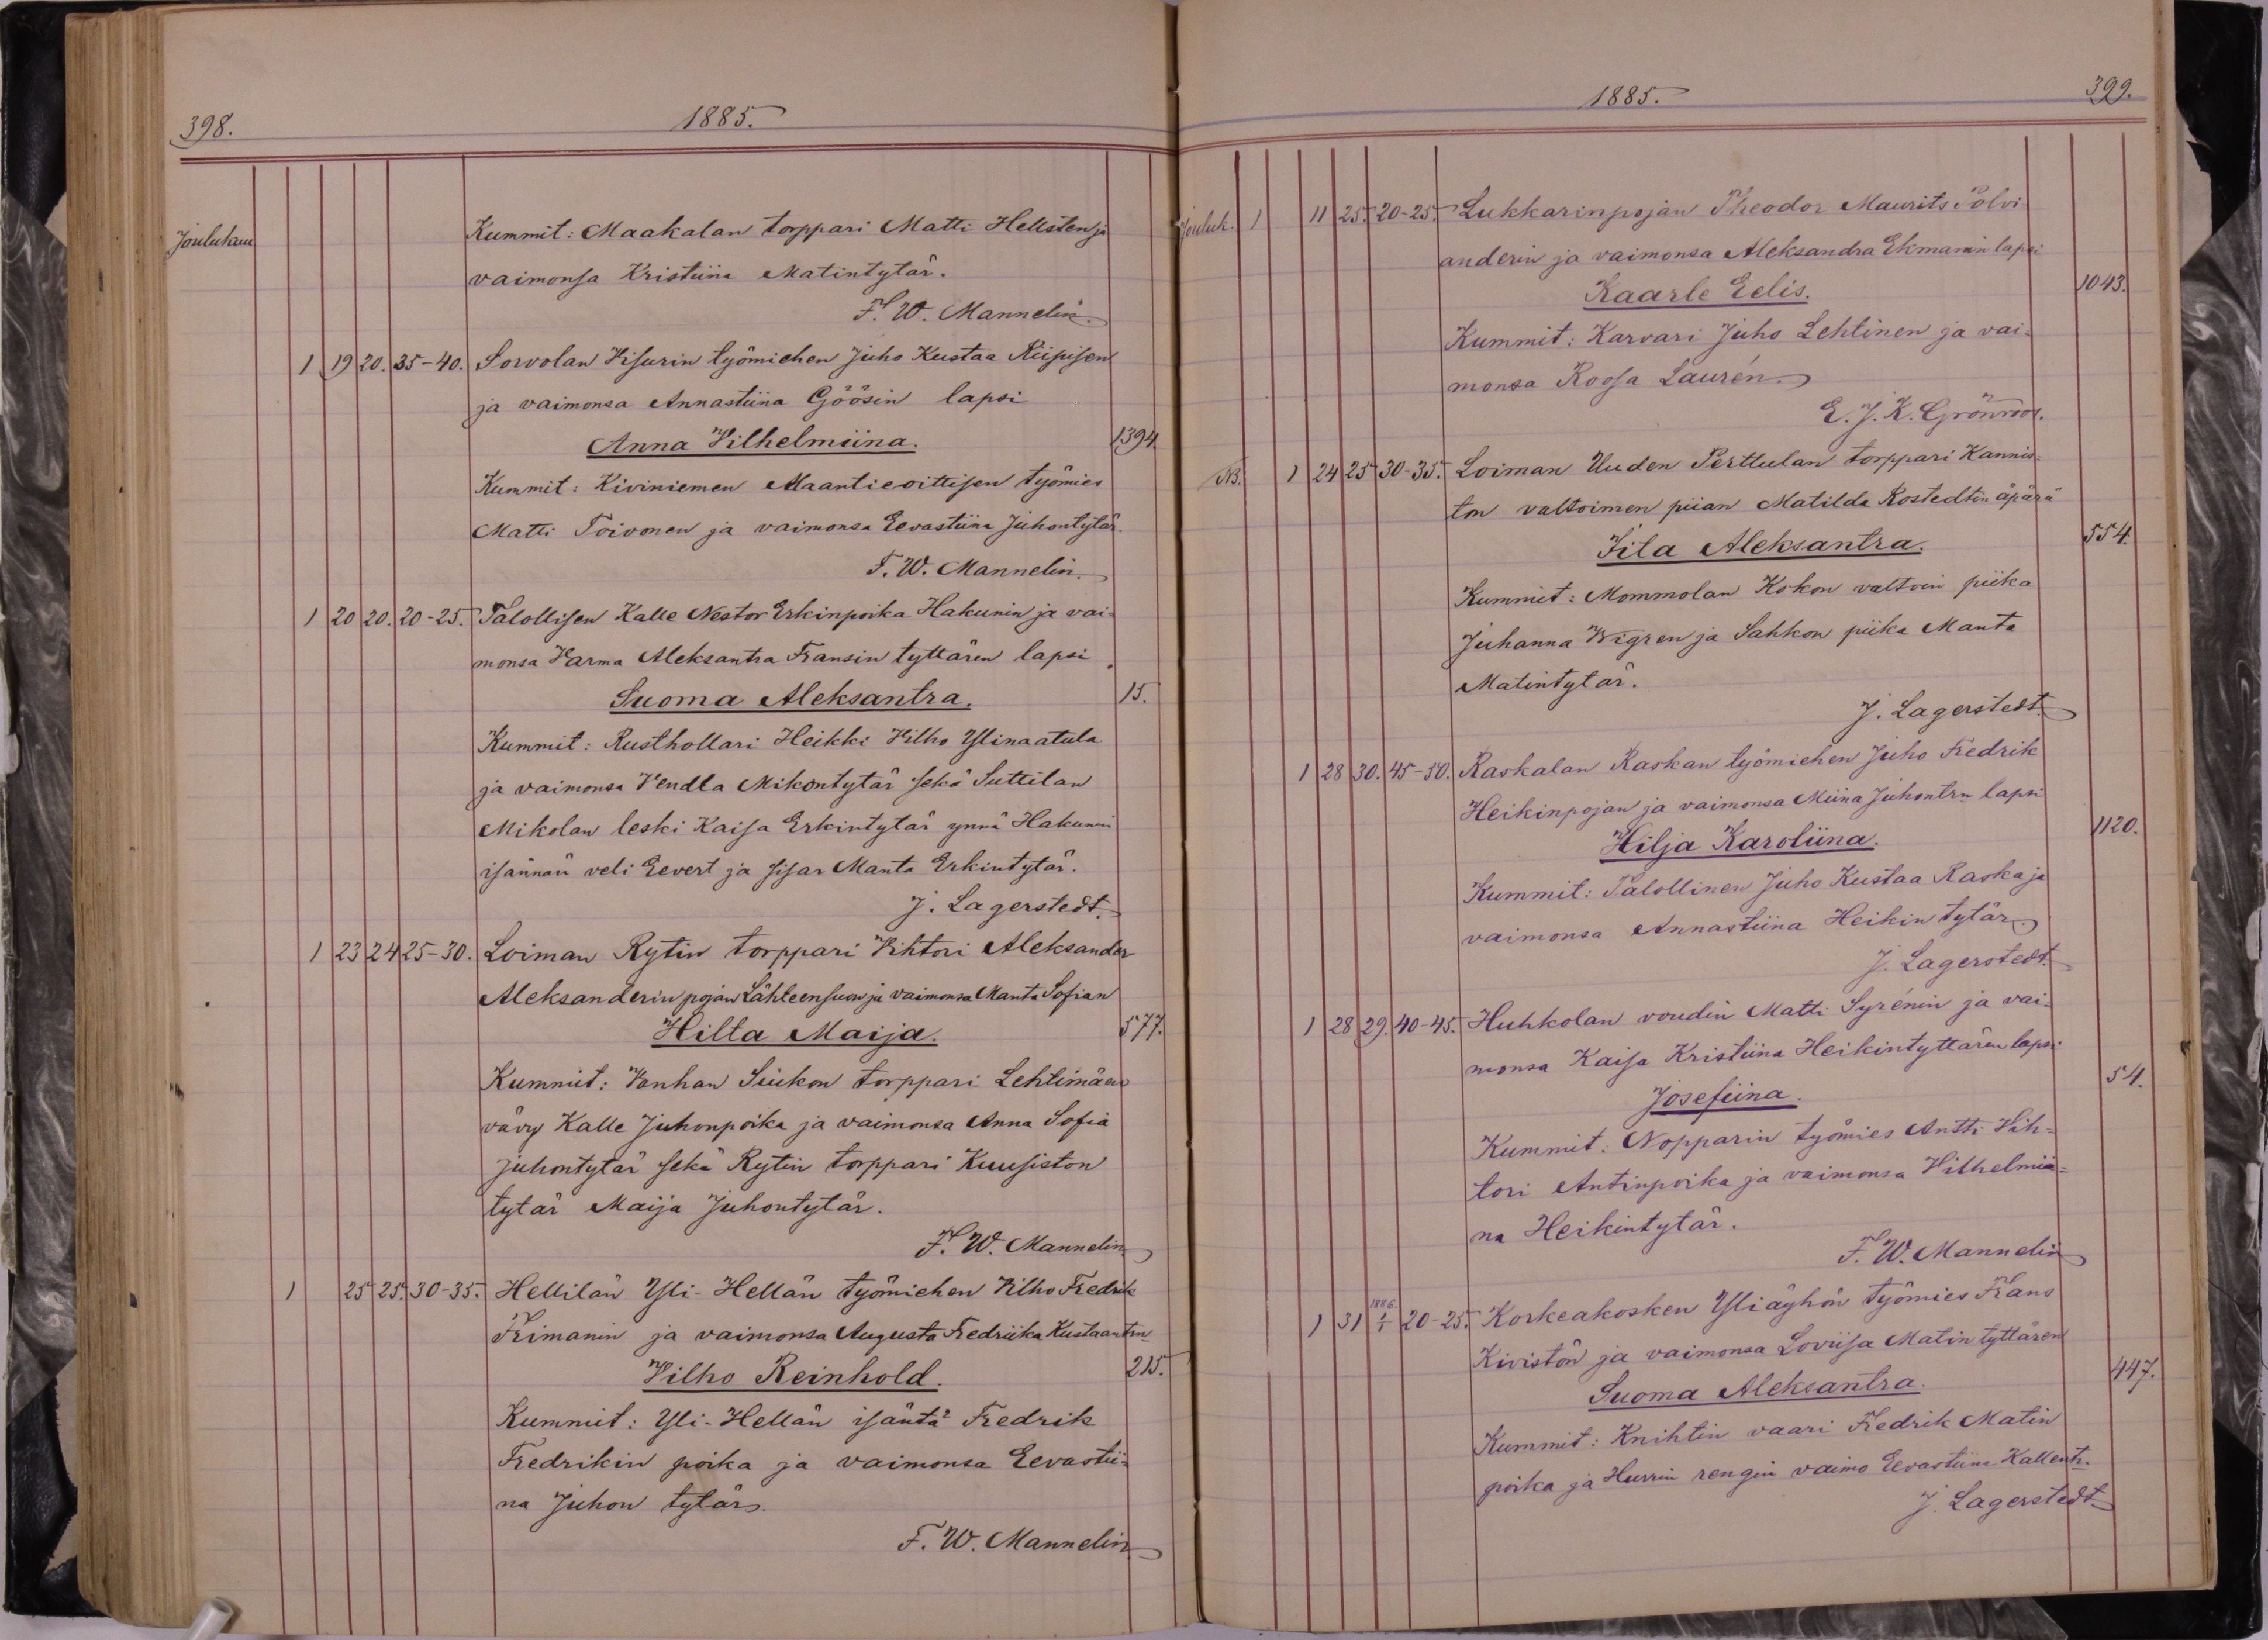 398.
1885.
Joulukuu
Kummit: Maakalan torppari Matti Hellsten ja
vaimonsa Kristiina Matintytär.
F. W. Mannelin.
1 19 20. 35-40. Sorvolan Visurin työmiehen Juho Kustaa Riipisen
ja vaimonsa Annastiina Göösin lapsi
Anna Vilhelmiina. 1394
Kummit: Kiviniemen Maantieoittisen työmies
Matti Toivonen ja vaimonsa Eevastiina Juhontytär.
F. W. Mannelin.
1 20 20. 20-25. Talollisen Kalle Nestor Erkinpoika Hakunin ja vai-
monsa Varma Aleksantra Fransin tyttären lapsi
Suoma Aleksantra. 15.
Kummit: Rusthollari Heikki Vilho Ylinaatula
ja vaimonsa Vendla Mikontytär sekä Suttilan
Mikolan leski Kaisa Erkintytär ynnä Hakunin
isännän veli Eevert ja sisar Manta Erkintytär.
J. Lagerstedt.
1 23 24 25-30. Loiman Rytin torppari Vihtori Aleksander
Aleksanderin pojan Lähteensuon ja vaimonsa Manta Sofian
Hilta Maija. 577.
Kummit: Vanhan Siukon torppari Lehtimäen
vävy Kalle Juhonpoika ja vaimonsa Anna Sofia
Juhontytär sekä Rytin torppari Kuusiston
tytär Maija Juhontytär.
F. W. Mannelin
1 25 25. 30-35. Hellilän Yli-Hellän työmiehen Vilho Fredrik
Frimanin ja vaimonsa Augusta Fredriika Kustaantrn
Vilho Reinhold. 215.
Kummit: Yli-Hellän isäntä Fredrik
Fredrikin poika ja vaimonsa Eevastii-
na Juhon tytär.
F. W. Mannelin
1885.
399.
Jouluk. 1 11 25. 20-25. Lukkarinpojan Theodor Maurits Pölvi
anderin ja vaimonsa Aleksandra Ekmanin lapsi
Kaarle Eelis. 1043.
Kummit: Karvari Juho Lehtinen ja vai-
monsa Roosa Laurén.
E. J. K. Grönroos.
NB. 1 24 25 30-35. Loiman Uuden Perttulan torppari Kannis-
ton valtoimen piian Matilda Rostedtin äpärä
Iita Aleksantra. 554.
Kummit: Mommolan Kokon valtoin piika
Juhanna Wigren ja Sahkon piika Manta
Matintytär.
J. Lagerstedt.
1 28 30. 45-50. Raskalan Raskan työmiehen Juho Fredrik
Heikinpojan ja vaimonsa Miina Juhontrn lapsi
Hilja Karoliina. 1120.
Kummit: Talollinen Juho Kustaa Raska ja
vaimonsa Annastiina Heikin tytär.
J. Lagerstedt.
1 28 29. 40-45. Huhkolan voudin Matti Syrénin ja vai-
monsa Kaisa Kristiina Heikintyttären lapsi
Josefiina. 54.
Kummit: Nopparin työmies Antti Vih-
tori Antinpoika ja vaimonsa Vilhelmii-
na Heikintytär.
F. W. Mannelin
1 31 1886. 1/1 20-25. Korkeakosken Yliäyhön työmies Frans
Kivistön ja vaimonsa Loviisa Matin tyttären
Suoma Aleksantra. 447.
Kummit: Knihtin vaari Fredrik Matin
poika ja Hurrin rengin vaimo Eevastiina Kallentr.
J. Lagerstedt